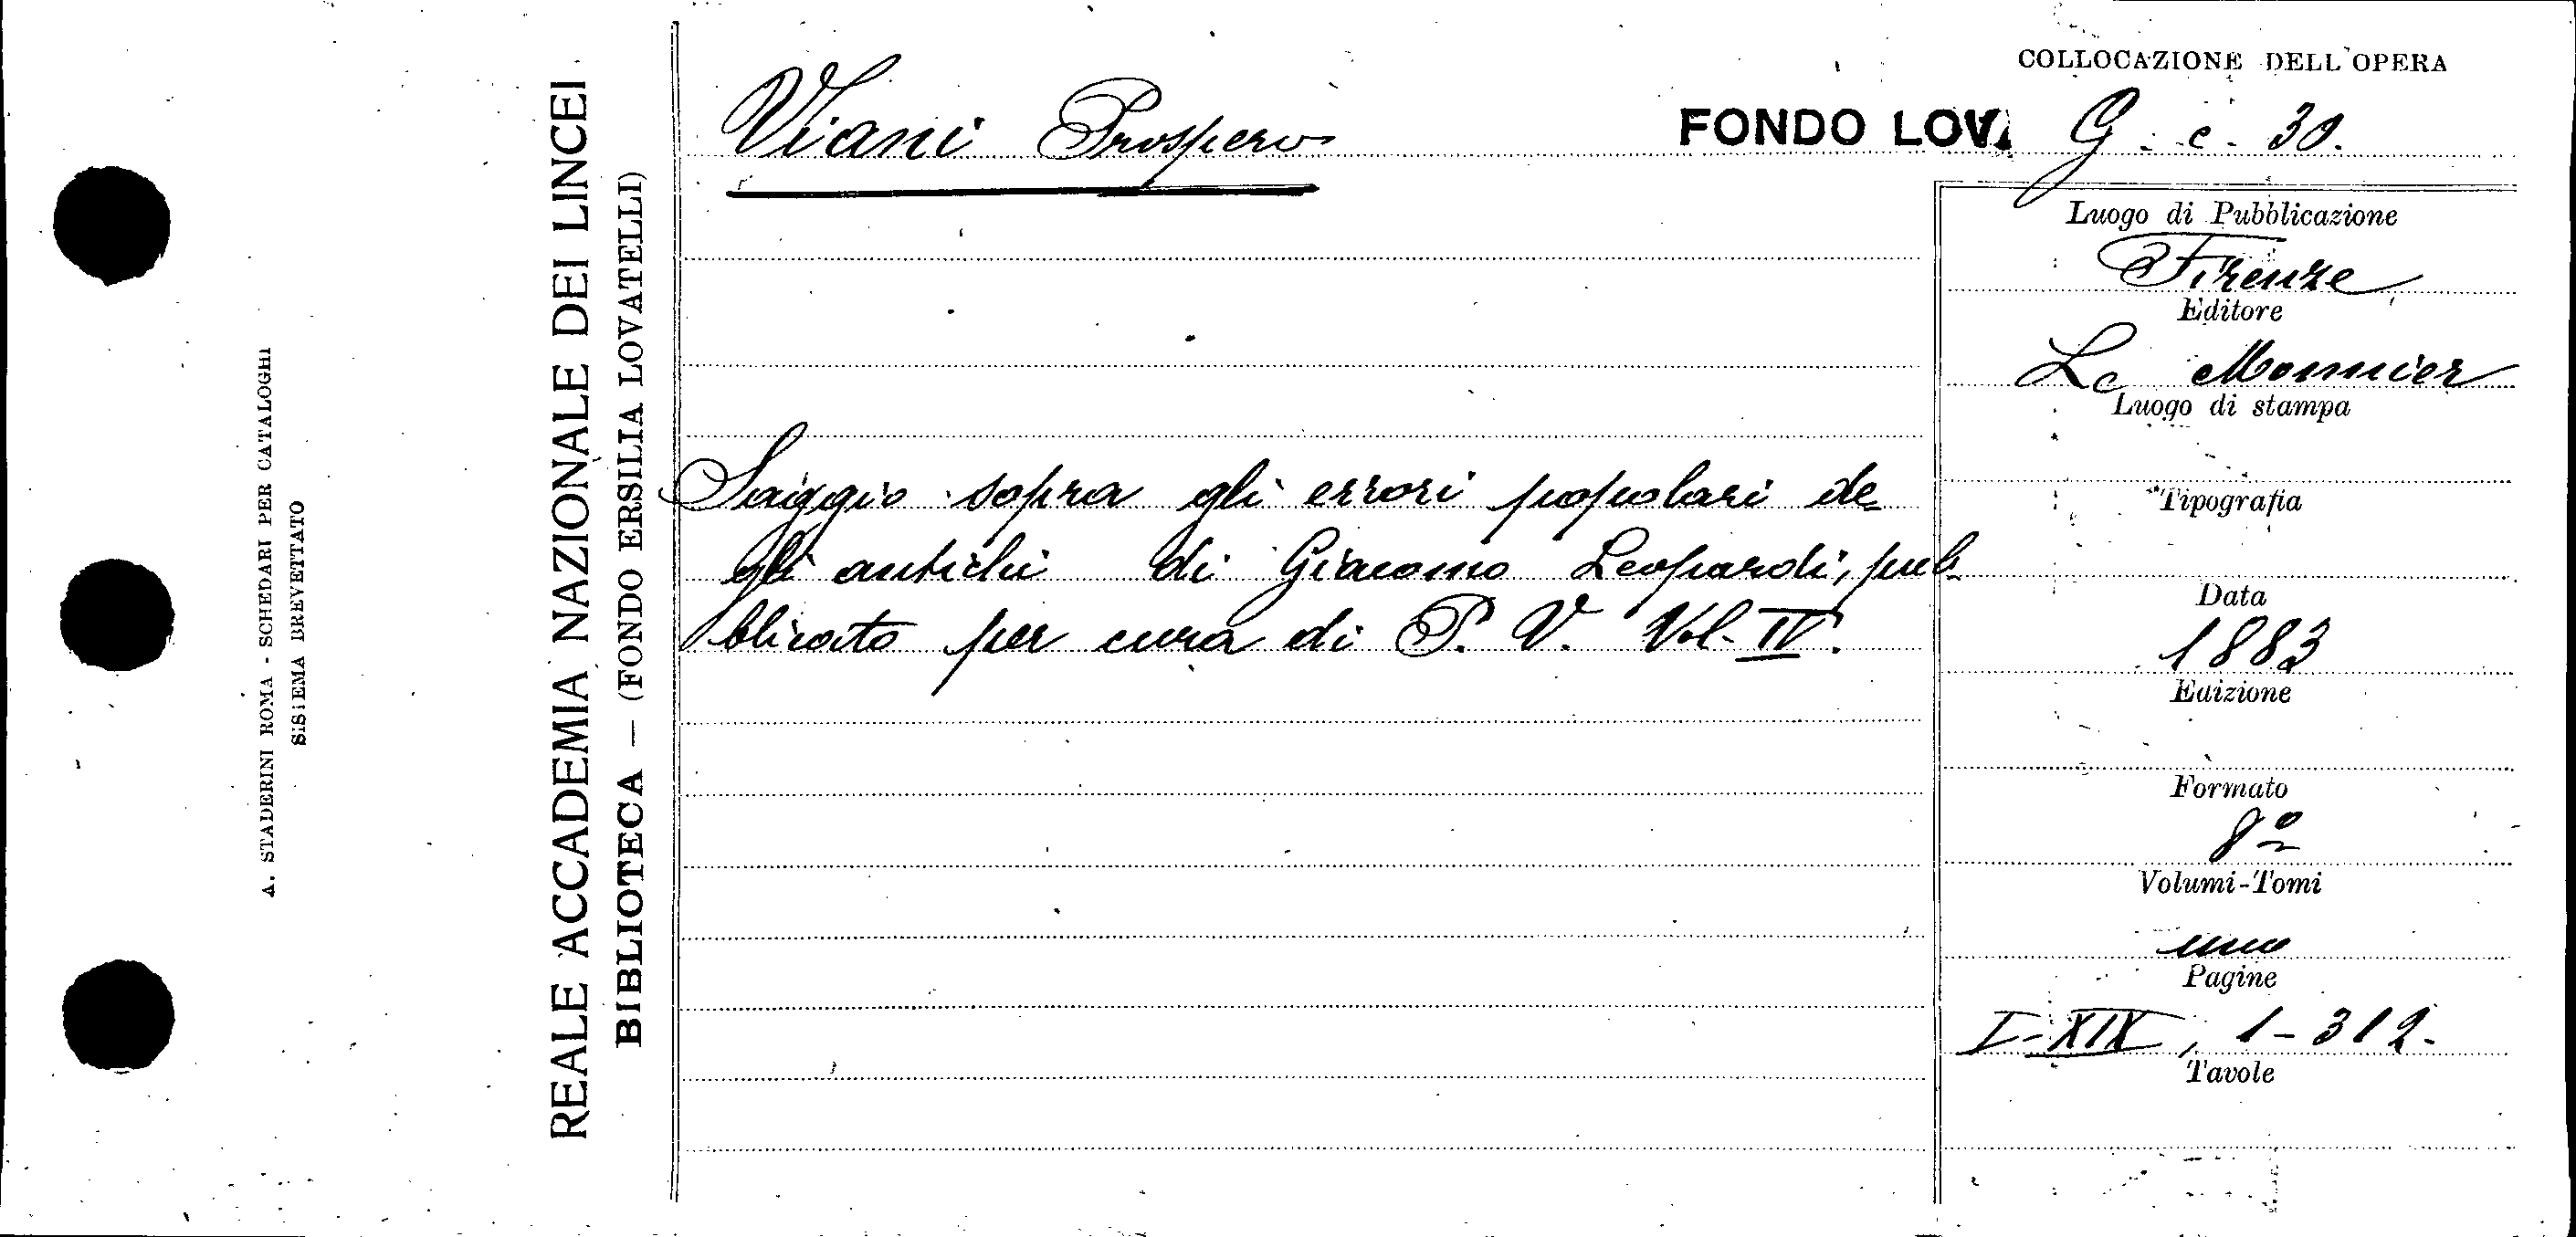 A. STADERINI ROMA - SCHEDARI PER CATALOGHI
SISTEMA BREVETTATO
REALE ACCADEMIA NAZIONALE DEI LINCEI
BIBLIOTECA — (FONDO ERSILIA LOVATELLI)
Viani Prospero
Saggio sopra gli errori popolari de-
gli antichi di Giacomo Leopardi, pub-
blicato per cura di P. V. Vol. IV.
COLLOCAZIONE DELL'OPERA
FONDO LOV. G. c. 30.
Luogo di Pubblicazione
Firenze
Editore
Le Monnier
Luogo di stampa
Tipografia
Data
1883
Edizione
Formato
8º
Volumi-Tomi
uno
Pagine
I-XIX, 1-312.
Tavole